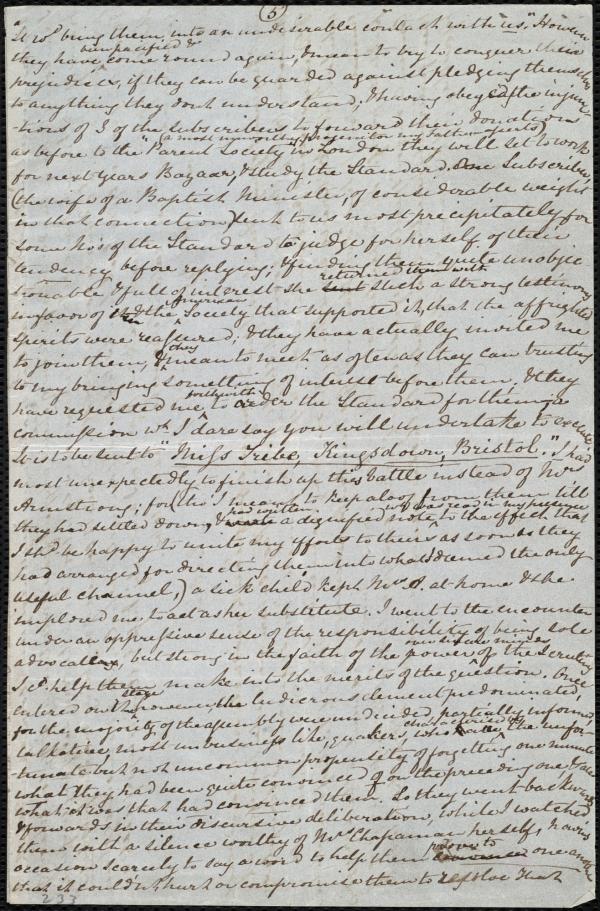 (5)
it wod. bring them into an undesirable contact with us." However
they have come round again, & mean to try to conquer their
unpacified &
prejudices, if they can be guarded against pledging themselves
to anything they don't understand; & having obeyed the injunc-
tions of 3 of the subscribers to forward their donations
(a most unworthy progenitor my father asserts)
as before to the "Parent Society" in London they will set to work
for next years Bazaar, & study the Standard. One Subscriber,
(the wife of a Baptist Minister, of considerable weight
in that connection) sent to us most precipitately for
some No's of the Standard to judge for herself of their
tendency before replying; & finding them quite unobjec
tionable & full of interest she sent such a strong testimony
returned them with
in favor of it & the Society that supported it, that the affrighted
American
spirits were reassured, & they have actually invited me
to join them, & mean to meet as often as they can trusting
they
to my bringing something of interest before them, & they
have requested me to order the Standard for them, a
forthwith
commission wh. I dare say you will undertake to execute
It is to be sent to "Miss Tribe, Kingsdown, Bristol." I had
most unexpectedly to finish up this battle instead of Mrs
Armstrong; for (tho' I mean to keep aloof from them till
they had settled down, & a dignified note to the effect that
had written
wh. was read in my presence
I shd. be happy to unite my efforts to theirs as soon as they
had arranged for directing them into what I deemed the only
useful channel,) a sick child kept Mrs A. at home & she
implored me to act as her substitute. I went to the encounter
under an oppressive sense of the responsibility of being sole
advocate, but strong in the faith of the power of the scrutiny
I cd. help them make into the merits of the question. Once
entered on the however, the ludicrous element predominated
stage
for the majority of the assembly were undecided, partially informed,
talkative, most unbusiness like, quakers, who the unfor-
characterised by
tunate but not uncommon propensity of forgetting one minute
what they had been quite convinced of on the preceding one, &
what it was that had convinced them. So they went backwards
& forwards in their discursive deliberation, while I watched
them with a silence worthy of Mrs Chapman herself, having
occasion scarcely to say a word to help them one another
prove to
that it couldn't hurt or compromise them to resolve that
233